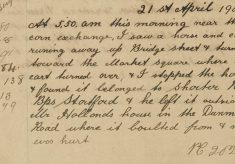 21st April 190
At 5.50. am this morning near the
corn exchange, I saw a horse and c
runing away up Bridge street & turn
toward the Market square where
138 cart turned over, & I stopped the ho
& found it belonged to Shorter
Bps Stortford & he left it outsi
Mr Hollands house in the
Road where it boulted from &
was hurt
PC